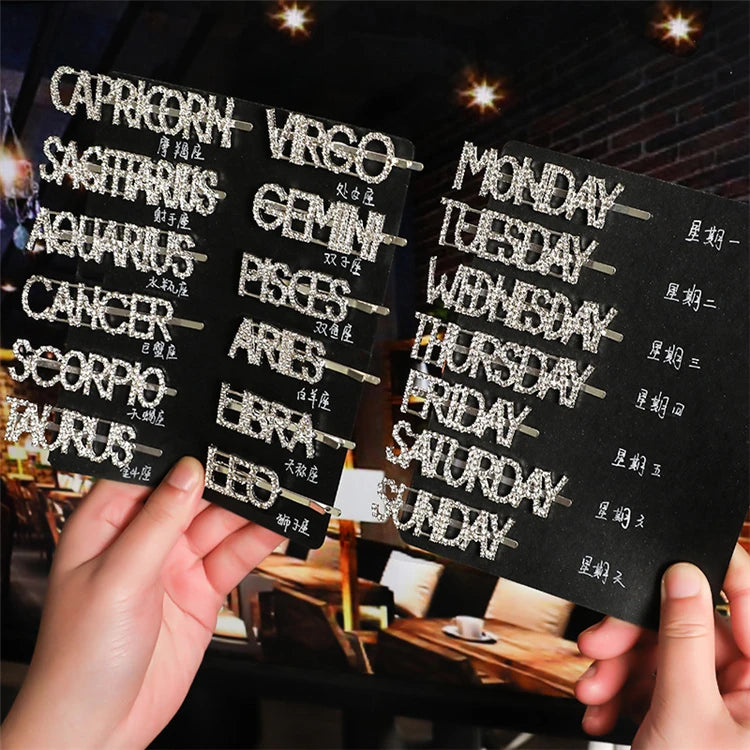 CAPRICORN
摩羯座
SAGITTARIUS
射手座
AQUARIUS
水瓶座
CANCER
巨蟹座
SCORPIO
天蝎座
TAURUS
金牛座
VIRGO
处女座
GEMINI
双子座
PISCES
双鱼座
ARIES
白羊座
LIBRA
天称座
LEO
狮子座
MONDAY
星期一
TUESDAY
星期二
WEDNESDAY
星期三
THURSDAY
星期四
FRIDAY
星期五
SATURDAY
星期六
SUNDAY
星期天